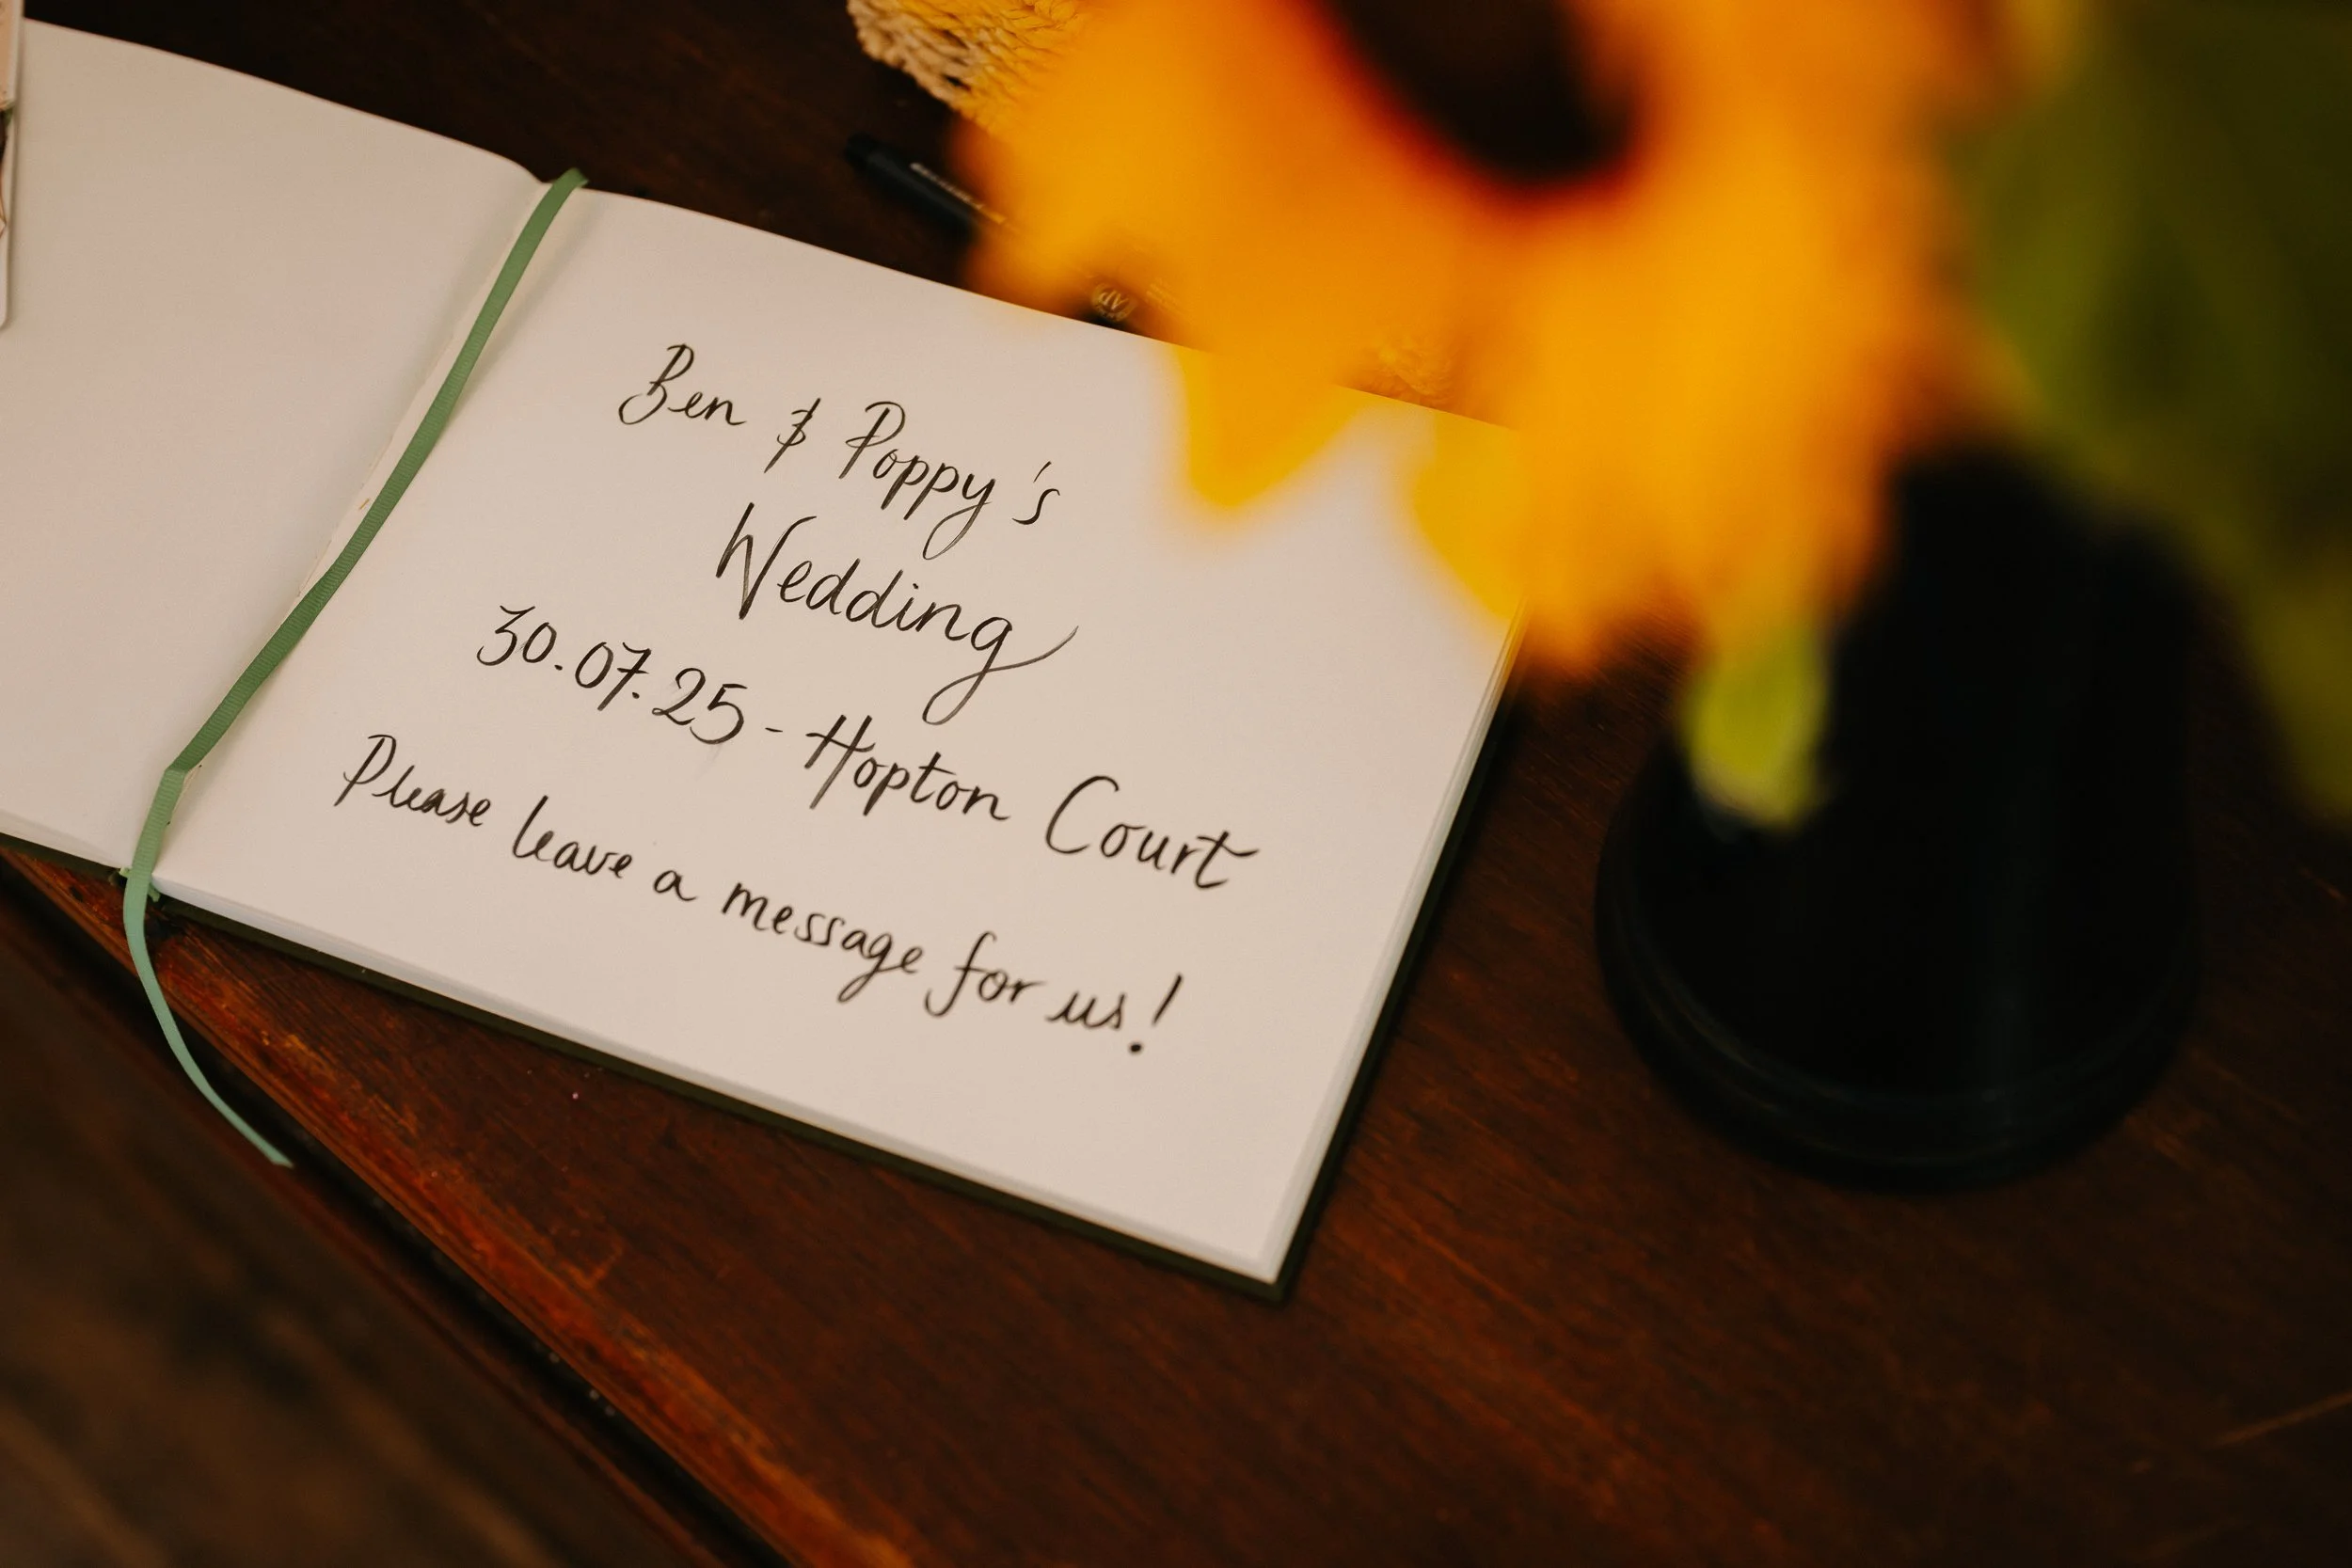 Ben & Poppy's
Wedding
30.07.25 - Hopton Court
Please leave a message for us!